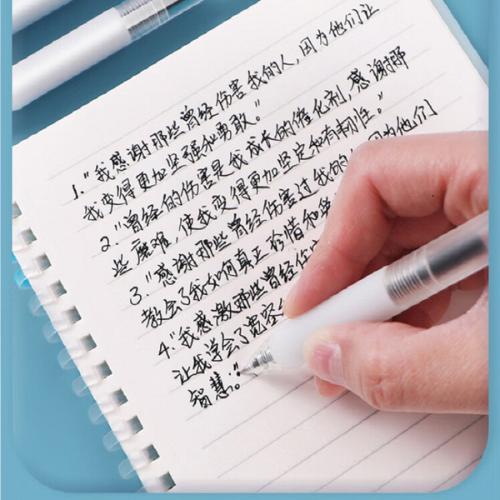 1."我感谢那些曾经伤害我的人,因为他们让
我变得更加坚强和勇敢。"
2."曾经的伤害是我成长的催化剂,感谢那
些磨难,使我变得更加坚定和有韧性。"
3."感谢那些曾经伤害过我的人,因为他们
教会了我如何真正珍惜和
4."我感激那些曾经伤
让我学会了宽容
智慧。"